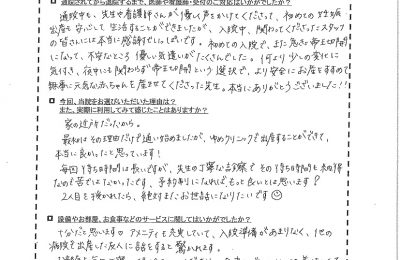 通院中も、先生や看護師さんが優しく声をかけてくださって、初めての妊娠
出産を安心して生活することができましたが、入院中、関わってくださったスタッフ
の皆さんには本当に感謝でいっぱいです。初めての入院で、また急きょ帝王切開
になって、不安なところ優しい気遣いがたくさんでした。何より少しの変化に
気付き、夜中にも関わらず帝王切開という選択で、より安全にお産をすすめて
無事に元気な赤ちゃんを産ませてくださった先生。本当にありがとうございました!!
■ 今回、当院をお選びいただいた理由は?
また、実際に利用してみて感じたことはありますか?
家の近所だったから。
最初はその理由だけで通い始めましたが、ゆめクリニックで出産することができて、
本当に良かったと思っています!
毎回待ち時間は長いですが、先生の丁寧な診察でその待ち時間も納得
なので苦ではなかったです、予約制になればもっと良いとは思います?
2人目を授かれたら、絶対またお世話になりたいです☺
■ 設備やお部屋、お食事などのサービスに関してはいかがでしたか?
十分だと思います♡ アメニティも充実していて、入院準備があまりなく、他の
病院で出産した友人に話をすると驚かれます。